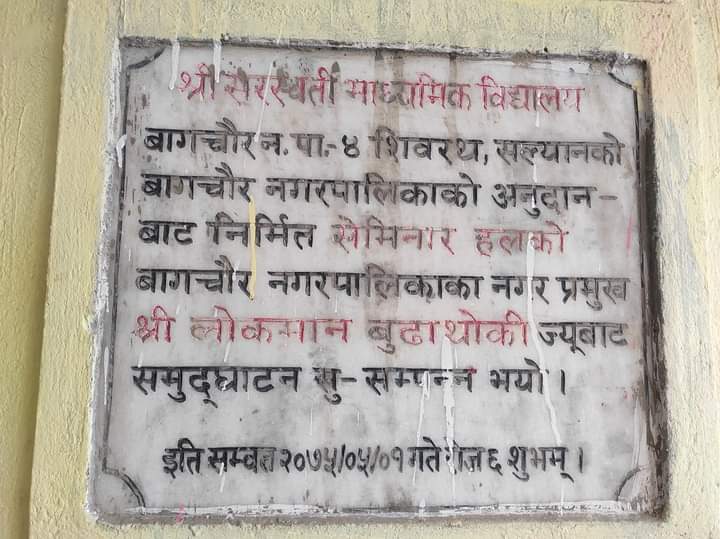 श्री सरस्वती माध्यामिक विद्यालय
बागचौर न. पा.- ४ शिवरथ, सल्यानको
बागचौर नगरपालिकाको अनुदान -
बाट निर्मित सेमिनार हलको
बागचौर नगरपालिकाका नगर प्रमुख
श्री लोकमान बुढाथोकी ज्यूबाट
समुद्घाटन सु- सम्पन्न भयो ।
इति सम्वत २०७५/०५/०१ गते रोज ६ शुभम् ।